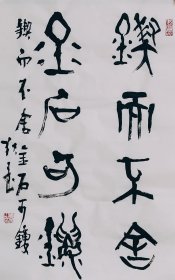 鍥而不舍
金石可鏤
鍥而不舍金石可鏤